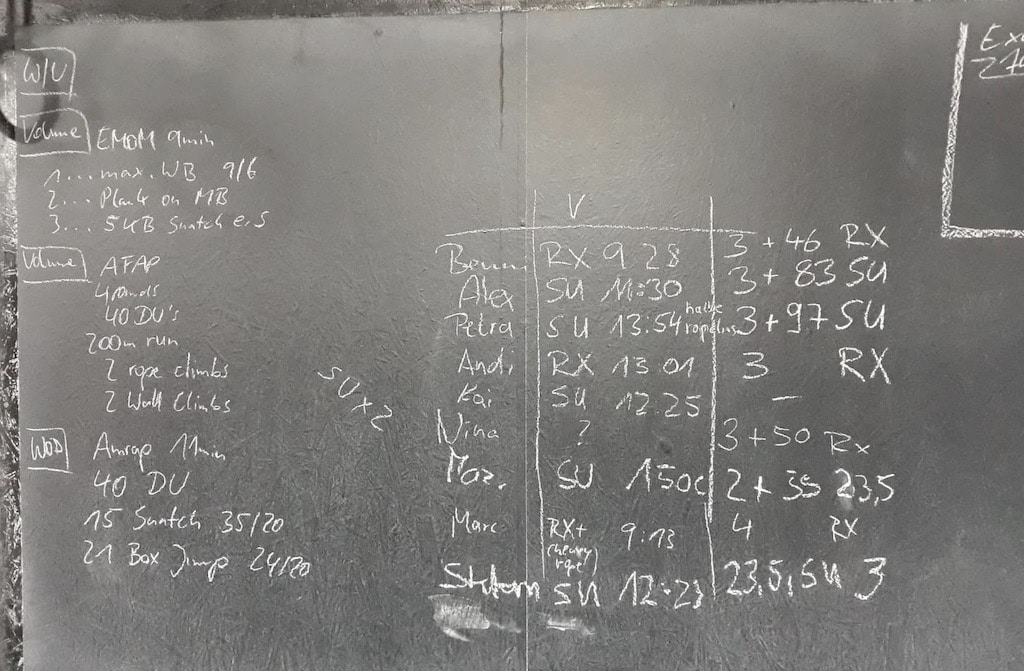 W/U
Volume EMOM 9min
1... max. WB 9/6
2... Plank on MB
3... 5 KB Snatch e.S
Volume AFAP
4 rounds
40 DU's
200m run
2 rope climbs
2 Wall Climbs
WOD Amrap 11min
40 DU
15 Snatch 35/20
21 Box Jump 24/20
SU x 2
V
RX 9 28 3 + 46 RX
Alex SU 11:30 3 + 83 SU
Petra SU 13:54 halbe 3 + 97 SU
Andi RX 13 01 3 RX
Kai SU 12.25 –
Nina ? 3 + 50 Rx
SU 2 + 39 23,5
Marc RX+ (heavy rope) 9:13 4 RX
SU 12:23 23,5, SU 3